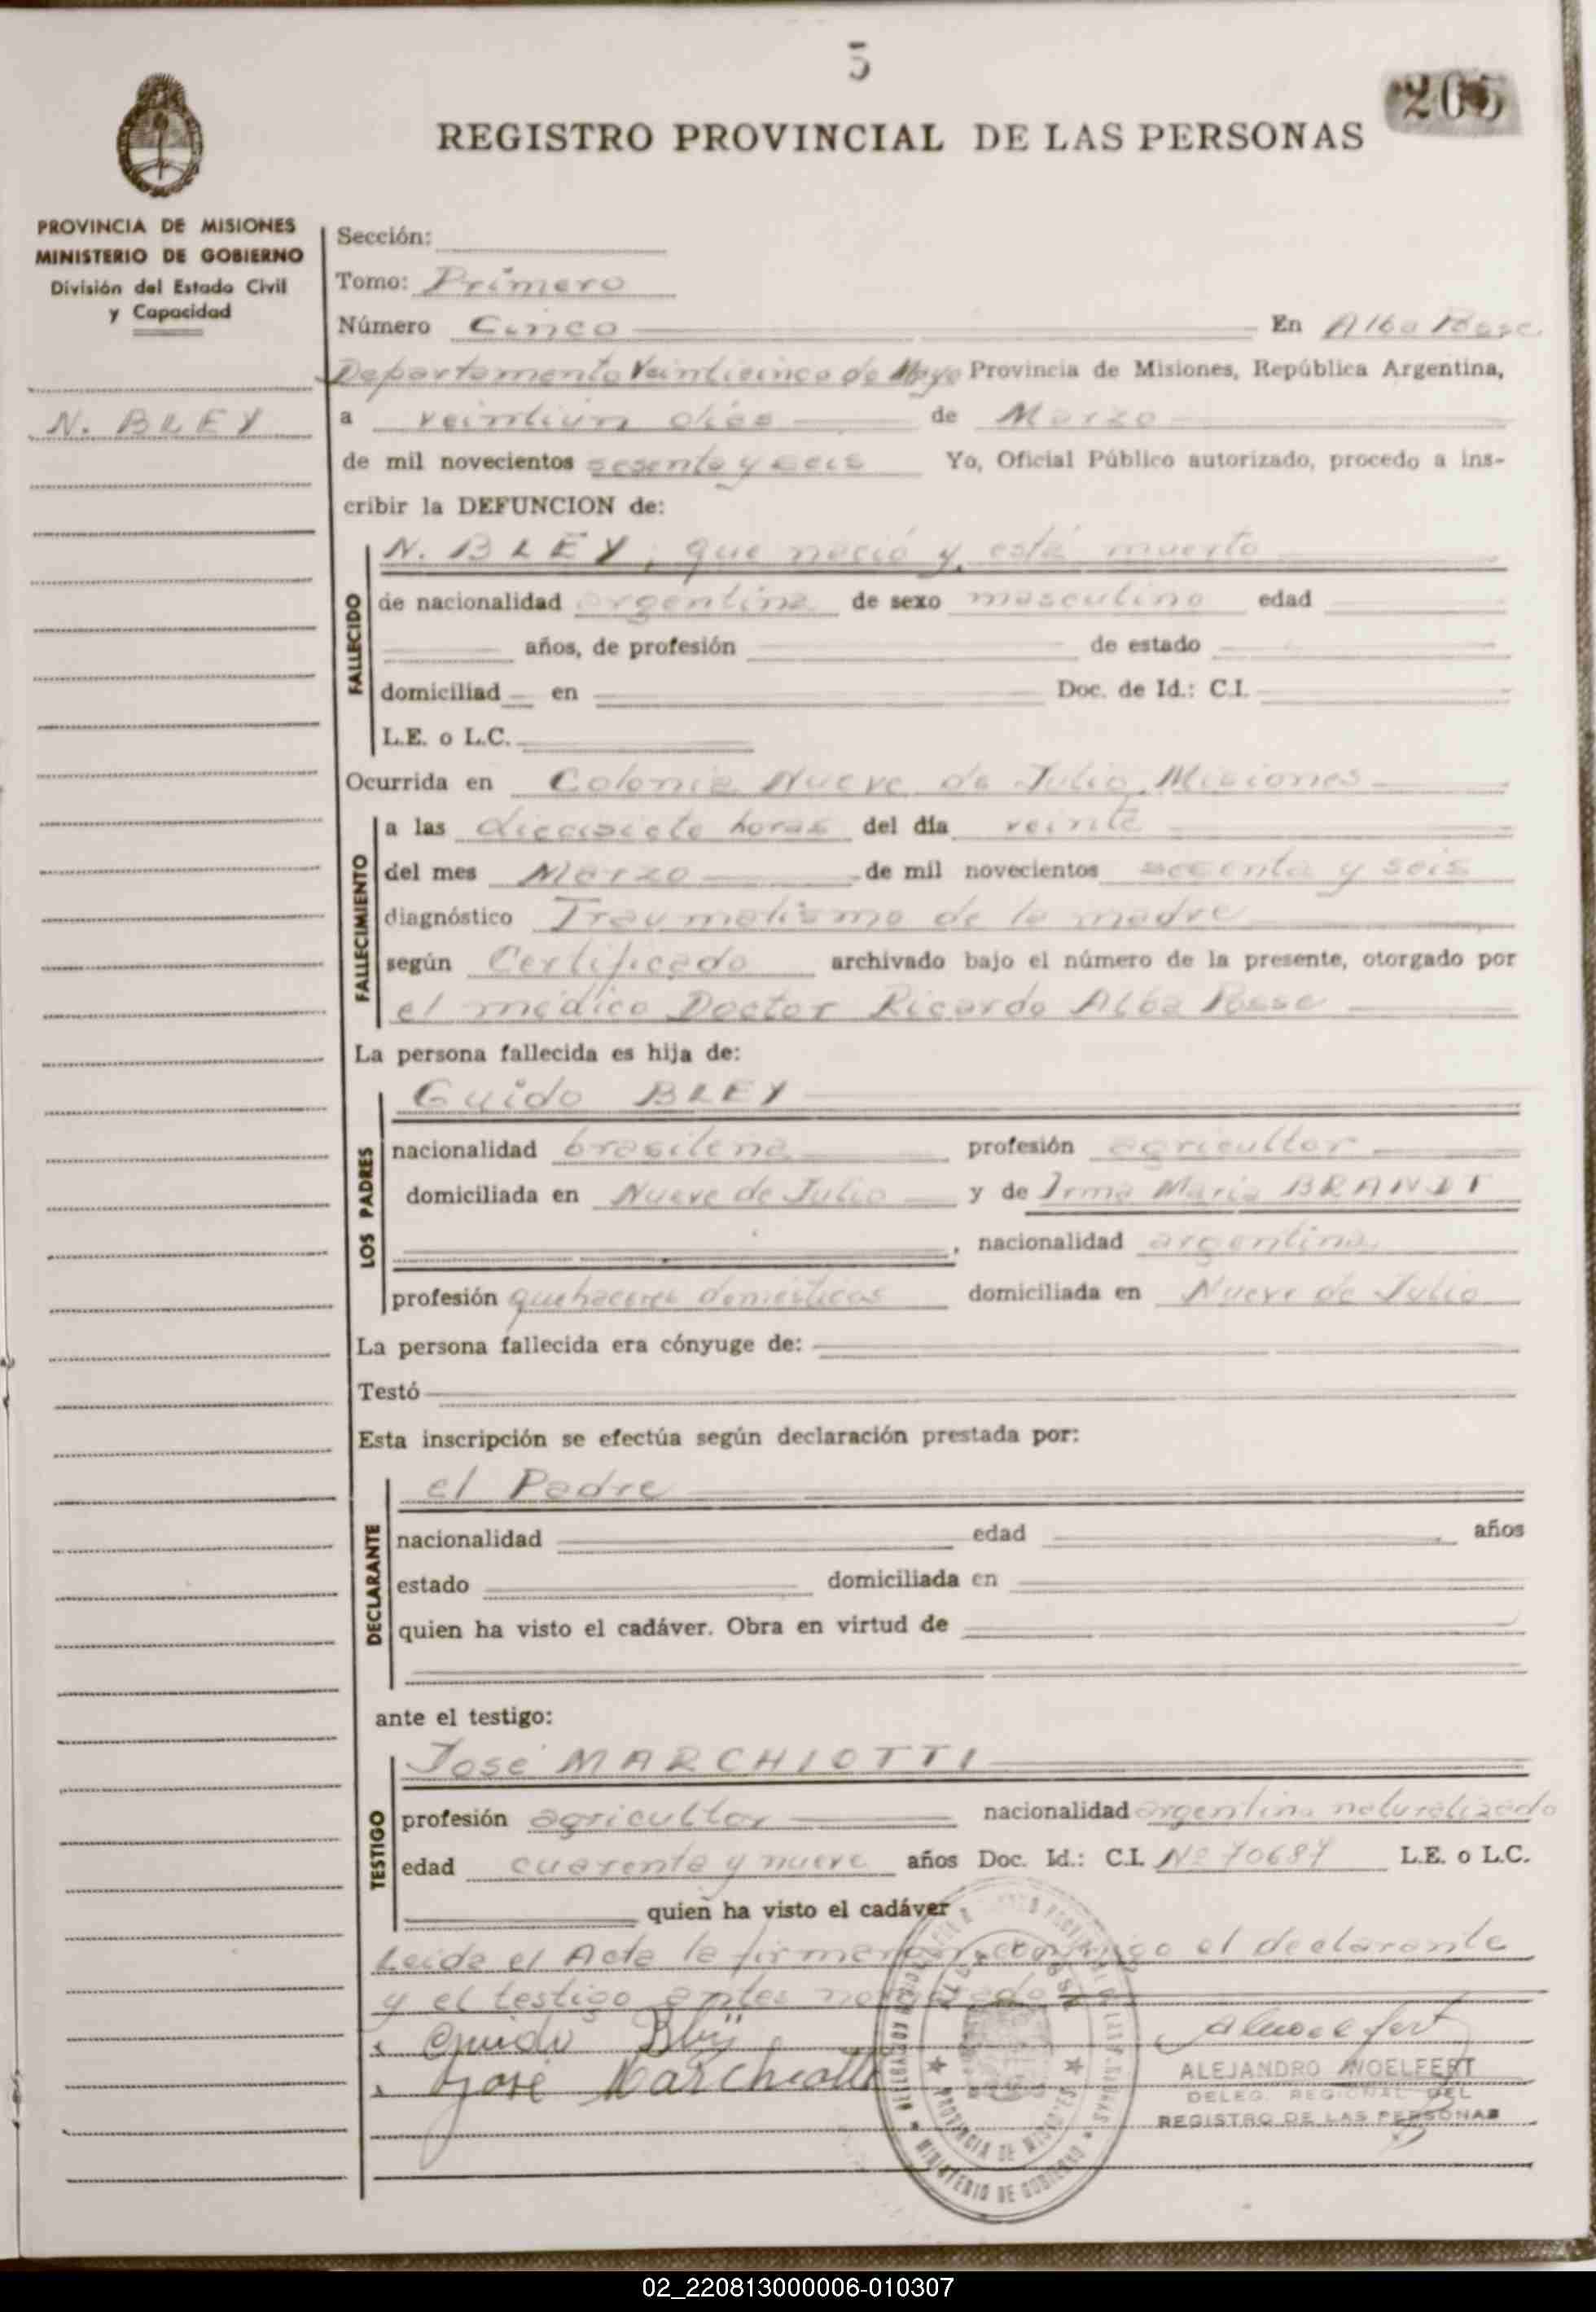 5
205
REGISTRO PROVINCIAL DE LAS PERSONAS
PROVINCIA DE MISIONES
MINISTERIO DE GOBIERNO
División del Estado Civil
y Capacidad
N. BLEY
Sección:
Tomo: Primero
Número Cinco En Alba Posse.
Departamento Veinticinco de Mayo Provincia de Misiones, República Argentina,
a veintiun dias de Marzo
de mil novecientos sesenta y seis Yo, Oficial Público autorizado, procedo a ins-
cribir la DEFUNCION de:
FALLECIDO
N. BLEY, que nació y está muerto
de nacionalidad argentina de sexo masculino edad
años, de profesión de estado
domiciliad en Doc. de Id.: C.I.
L.E. o L.C.
Ocurrida en Colonia Nueve de Julio, Misiones
FALLECIMIENTO
a las diecisiete horas del día veinte
del mes Marzo de mil novecientos sesenta y seis
diagnóstico Traumatismo de la madre
según Certificado archivado bajo el número de la presente, otorgado por
el médico Doctor Ricardo Alba Posse
La persona fallecida es hija de:
LOS PADRES
Guido BLEY
nacionalidad brasileña profesión agricultor
domiciliada en Nueve de Julio y de Irma Maria BRANDT
, nacionalidad argentina
profesión quehaceres domésticos domiciliada en Nueve de Julio
La persona fallecida era cónyuge de:
Testó
Esta inscripción se efectúa según declaración prestada por:
DECLARANTE
el Padre
nacionalidad edad años
estado domiciliada en
quien ha visto el cadáver. Obra en virtud de
ante el testigo:
TESTIGO
José MARCHIOTTI
profesión agricultor nacionalidad argentino naturalizado
edad cuarenta y nueve años Doc. Id.: C.I. Nº 70687 L.E. o L.C.
quien ha visto el cadáver
Leida el Acta la firmaron conmigo el declarante
y el testigo antes nombrado
Guido Bley
José Marchiotti
PROVINCIA DE MISIONES
MINISTERIO DE GOBIERNO
Alwoelfert
ALEJANDRO WOELFERT
DELEG. REGIONAL DEL
REGISTRO DE LAS PERSONAS
02_220813000006-010307